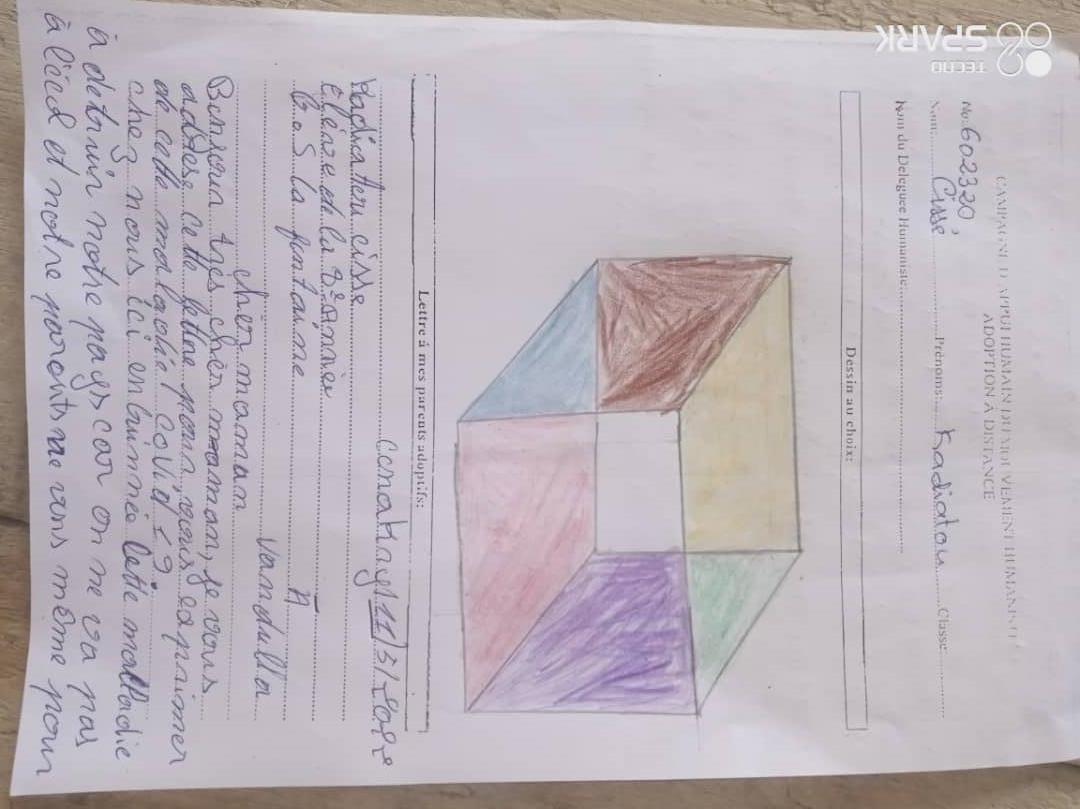 CAMPAGNE D'APPUI HUMAIN DU MOUVEMENT HUMANISTE
ADOPTION À DISTANCE
No: 602320
Nom: Cissé Prénoms: Kadiatou Classe:
Nom du Déléguee Humaniste
Dessin au choix:
Lettre à mes parents adoptifs:
Conakry 11/5/
Kadiatou cisse
Elèeve de la 8e année
G.S la fontaine
Vandulla
A
cher maman
Bonjour tres cher maman, je vous
adrese cette lettre pour vous exprimer
de cette maladie covid 19
chez nous ici en Guinnée Cette malladie
à detruir notre pays car on ne va pas
à l'écol et notre parents même pour
TECNO
SPARK